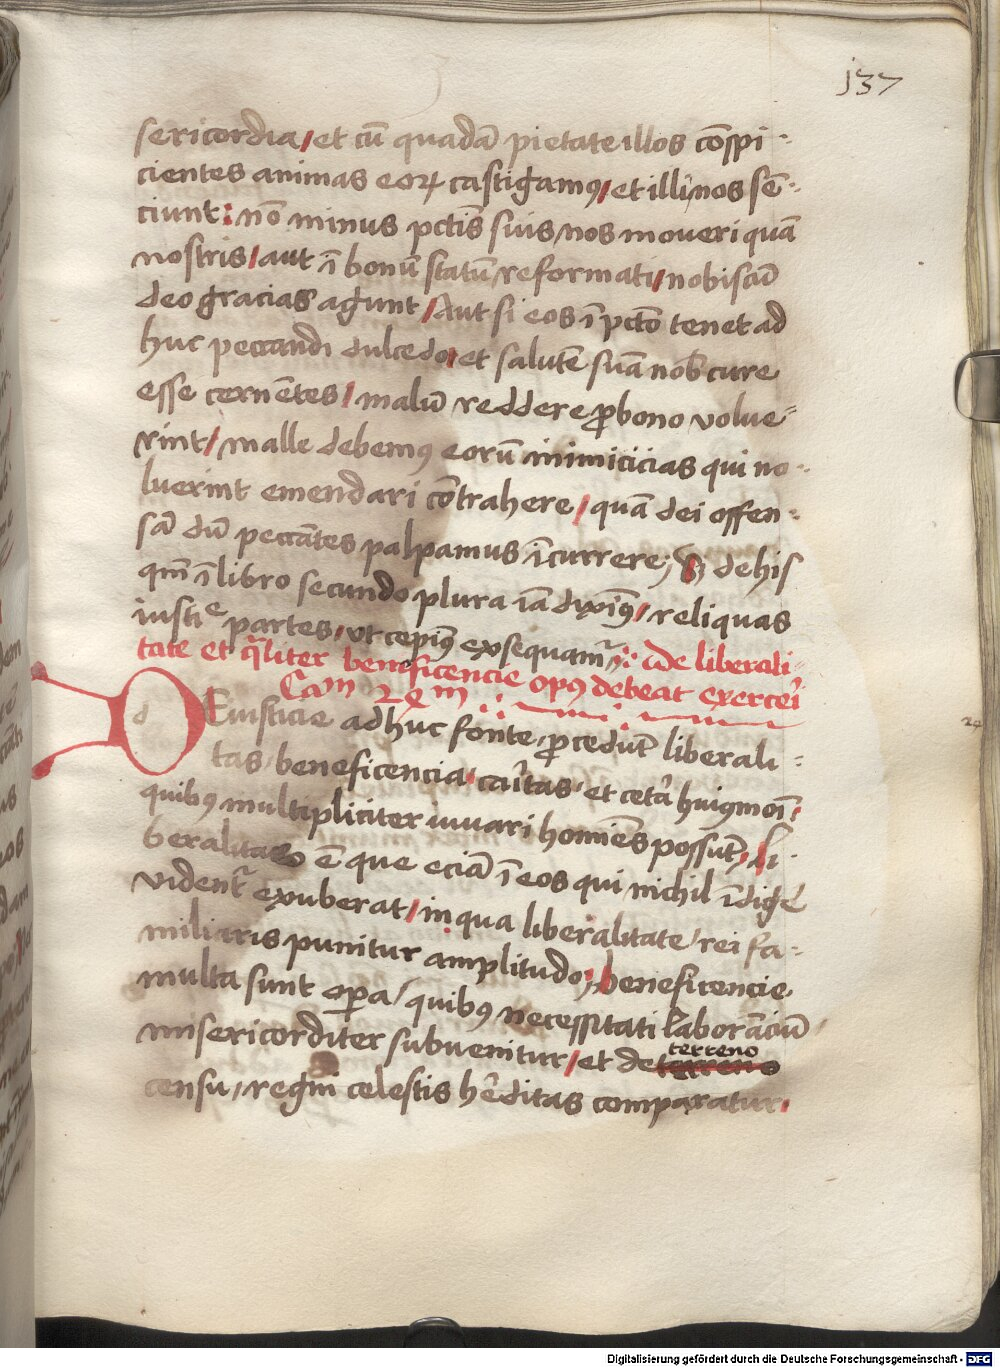 137
sericordia / et cū quadā pietate illos cōspi-
cientes animas eoꝝ castigamꝰ / et illi nos sē-
ciunt : nō minus pctīs suis nos moueri quā
nostris / aut ī bonū statū reformati / nobiscū
deo gracias agunt / Aut si eos ī pctō tenet ad
huc peccandi dulcedo / et salutē suā nob̄ cure
esse cernētes / malū reddere ꝓ bono volue-
rint / malle debemꝰ eorū inimicicias qui no-
luerint emendari cōtrahere / quā dei offen-
sā dū peccātes palpamus īcurrere ; Sȝ de his
qm̄ ī libro secundo plura iā dixīꝰ / reliquas
iusticie partes / vt cepimꝰ exsequamr̄ : De liberali-
tate et qͣliter beneficencie opꝰ debeat exerceri
Cam 28m
d
DE iusticie adhuc fonte ꝓcedūt liberali-
tas / beneficencia / cāritas / et cetā huiꝰmōi /
quibꝰ multipliciter iuuari homīes possūt / li-
beralitas ē que eciā ī eos qui nichil īdigē
vident̄ exuberat / in qua liberalitate / rei fa-
miliaris punitur amplitudo ; beneficencie
multa sunt oꝑa / quibꝰ necessitati laborāciū
misericorditer subuenitur / et de terreno
terreno
censu / regni celestis hēditas comparatur /
Digitalisierung gefördert durch die Deutsche Forschungsgemeinschaft - DFG